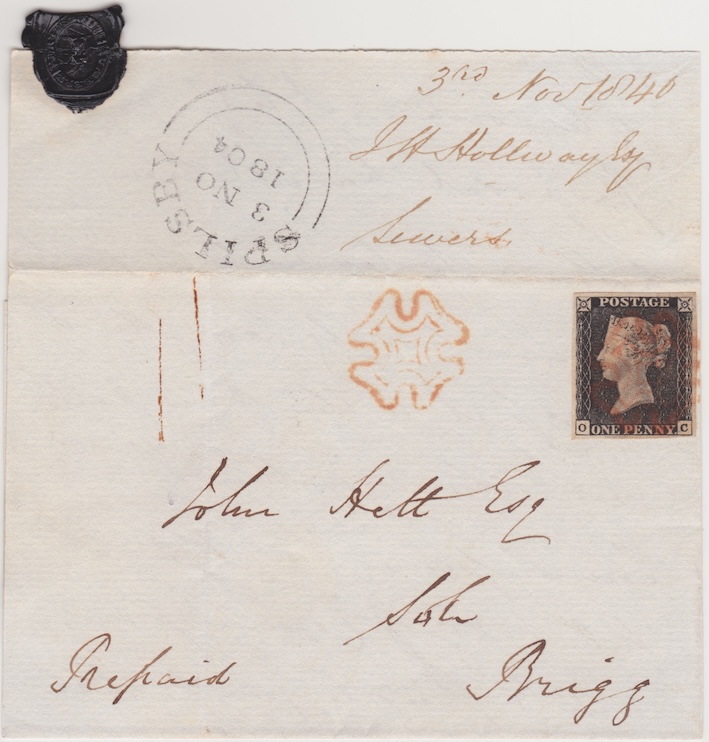 3rd Nov 1840
J H Hollway Esq
Sewers
SPILSBY
3 NO
1804
POSTAGE
O ONE PENNY. C
John Hett Esq
Solr
Brigg
Prepaid